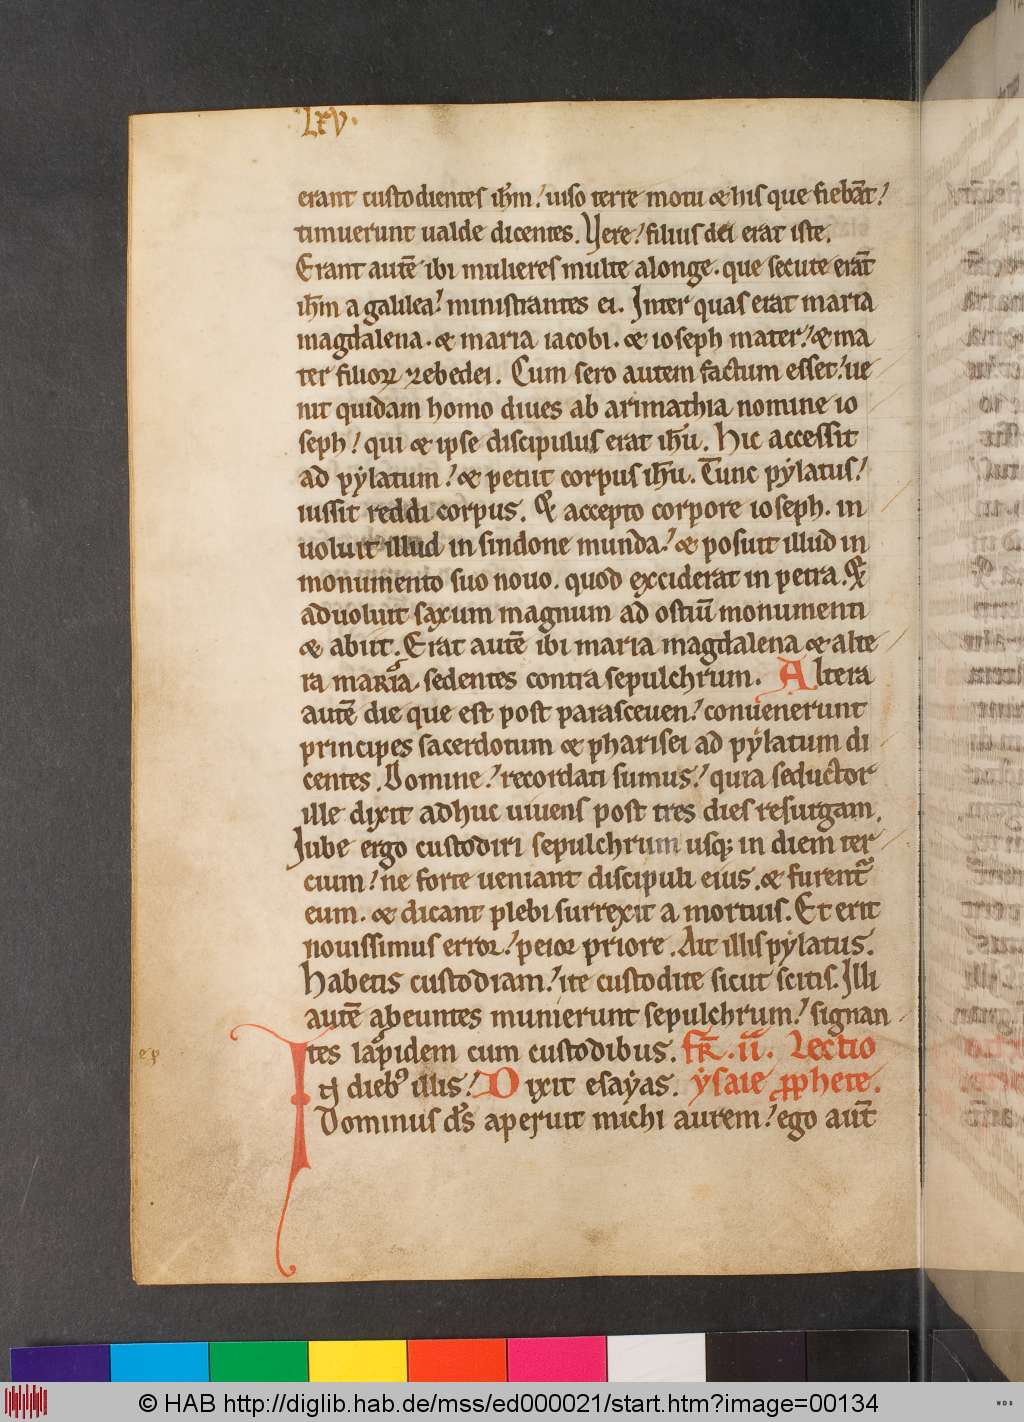 ·Lxv·
erant custodientes ih̄m! uiso terre motu & his que fiebāt!
timuerunt ualde dicentes. Vere! filius dei erat iste.
Erant autē ibi mulieres multe alonge. que secute erāt
ih̄m a galilea! ministrantes ei. Inter quas erat maria
magdalena. & maria iacobi. & ioseph mater! & ma
ter filioꝝ zebedei. Cum sero autem factum esset! ue
nit quidam homo diues ab arimathia nomine io
seph! qui & ipse discipulus erat ih̄u. Hic accessit
ad pẏlatum! & petiit corpus ih̄u. Tunc pẏlatus!
iussit reddi corpus. & accepto corpore ioseph. in
uoluit illud in sindone munda! & posuit illud in
monumento suo nouo. quod exciderat in petra. &
aduoluit saxum magnum ad ostiū monumenti
& abiit. Erat autē ibi maria magdalena & alte
ra maria. sedentes contra sepulchrum. Altera
autē die que est post parasceuen! conuenerunt
principes sacerdotum & pharisei ad pẏlatum di
centes. Domine! recordati sumus! quia seductor
ille dixit adhuc uiuens post tres dies resurgam.
Iube ergo custodiri sepulchrum usqꝫ in diem ter
cium! ne forte ueniant discipuli eius. & furent᷑
eum. & dicant plebi surrexit a mortuis. Et erit
nouissimus error! peior priore. Ait illis pẏlatus.
Habetis custodiam! ite custodite sicut scitis. Illi
autē abeuntes munierunt sepulchrum! signan
tes lapidem cum custodibus. fr̄. ii. Lectio
I ꞃ dieb⁹ illis! Dixit esaẏas. ẏsaie ꝓphete.
Dominus ds̄ aperuit michi aurem! ego aūt
© HAB http://diglib.hab.de/mss/ed000021/start.htm?image=00134